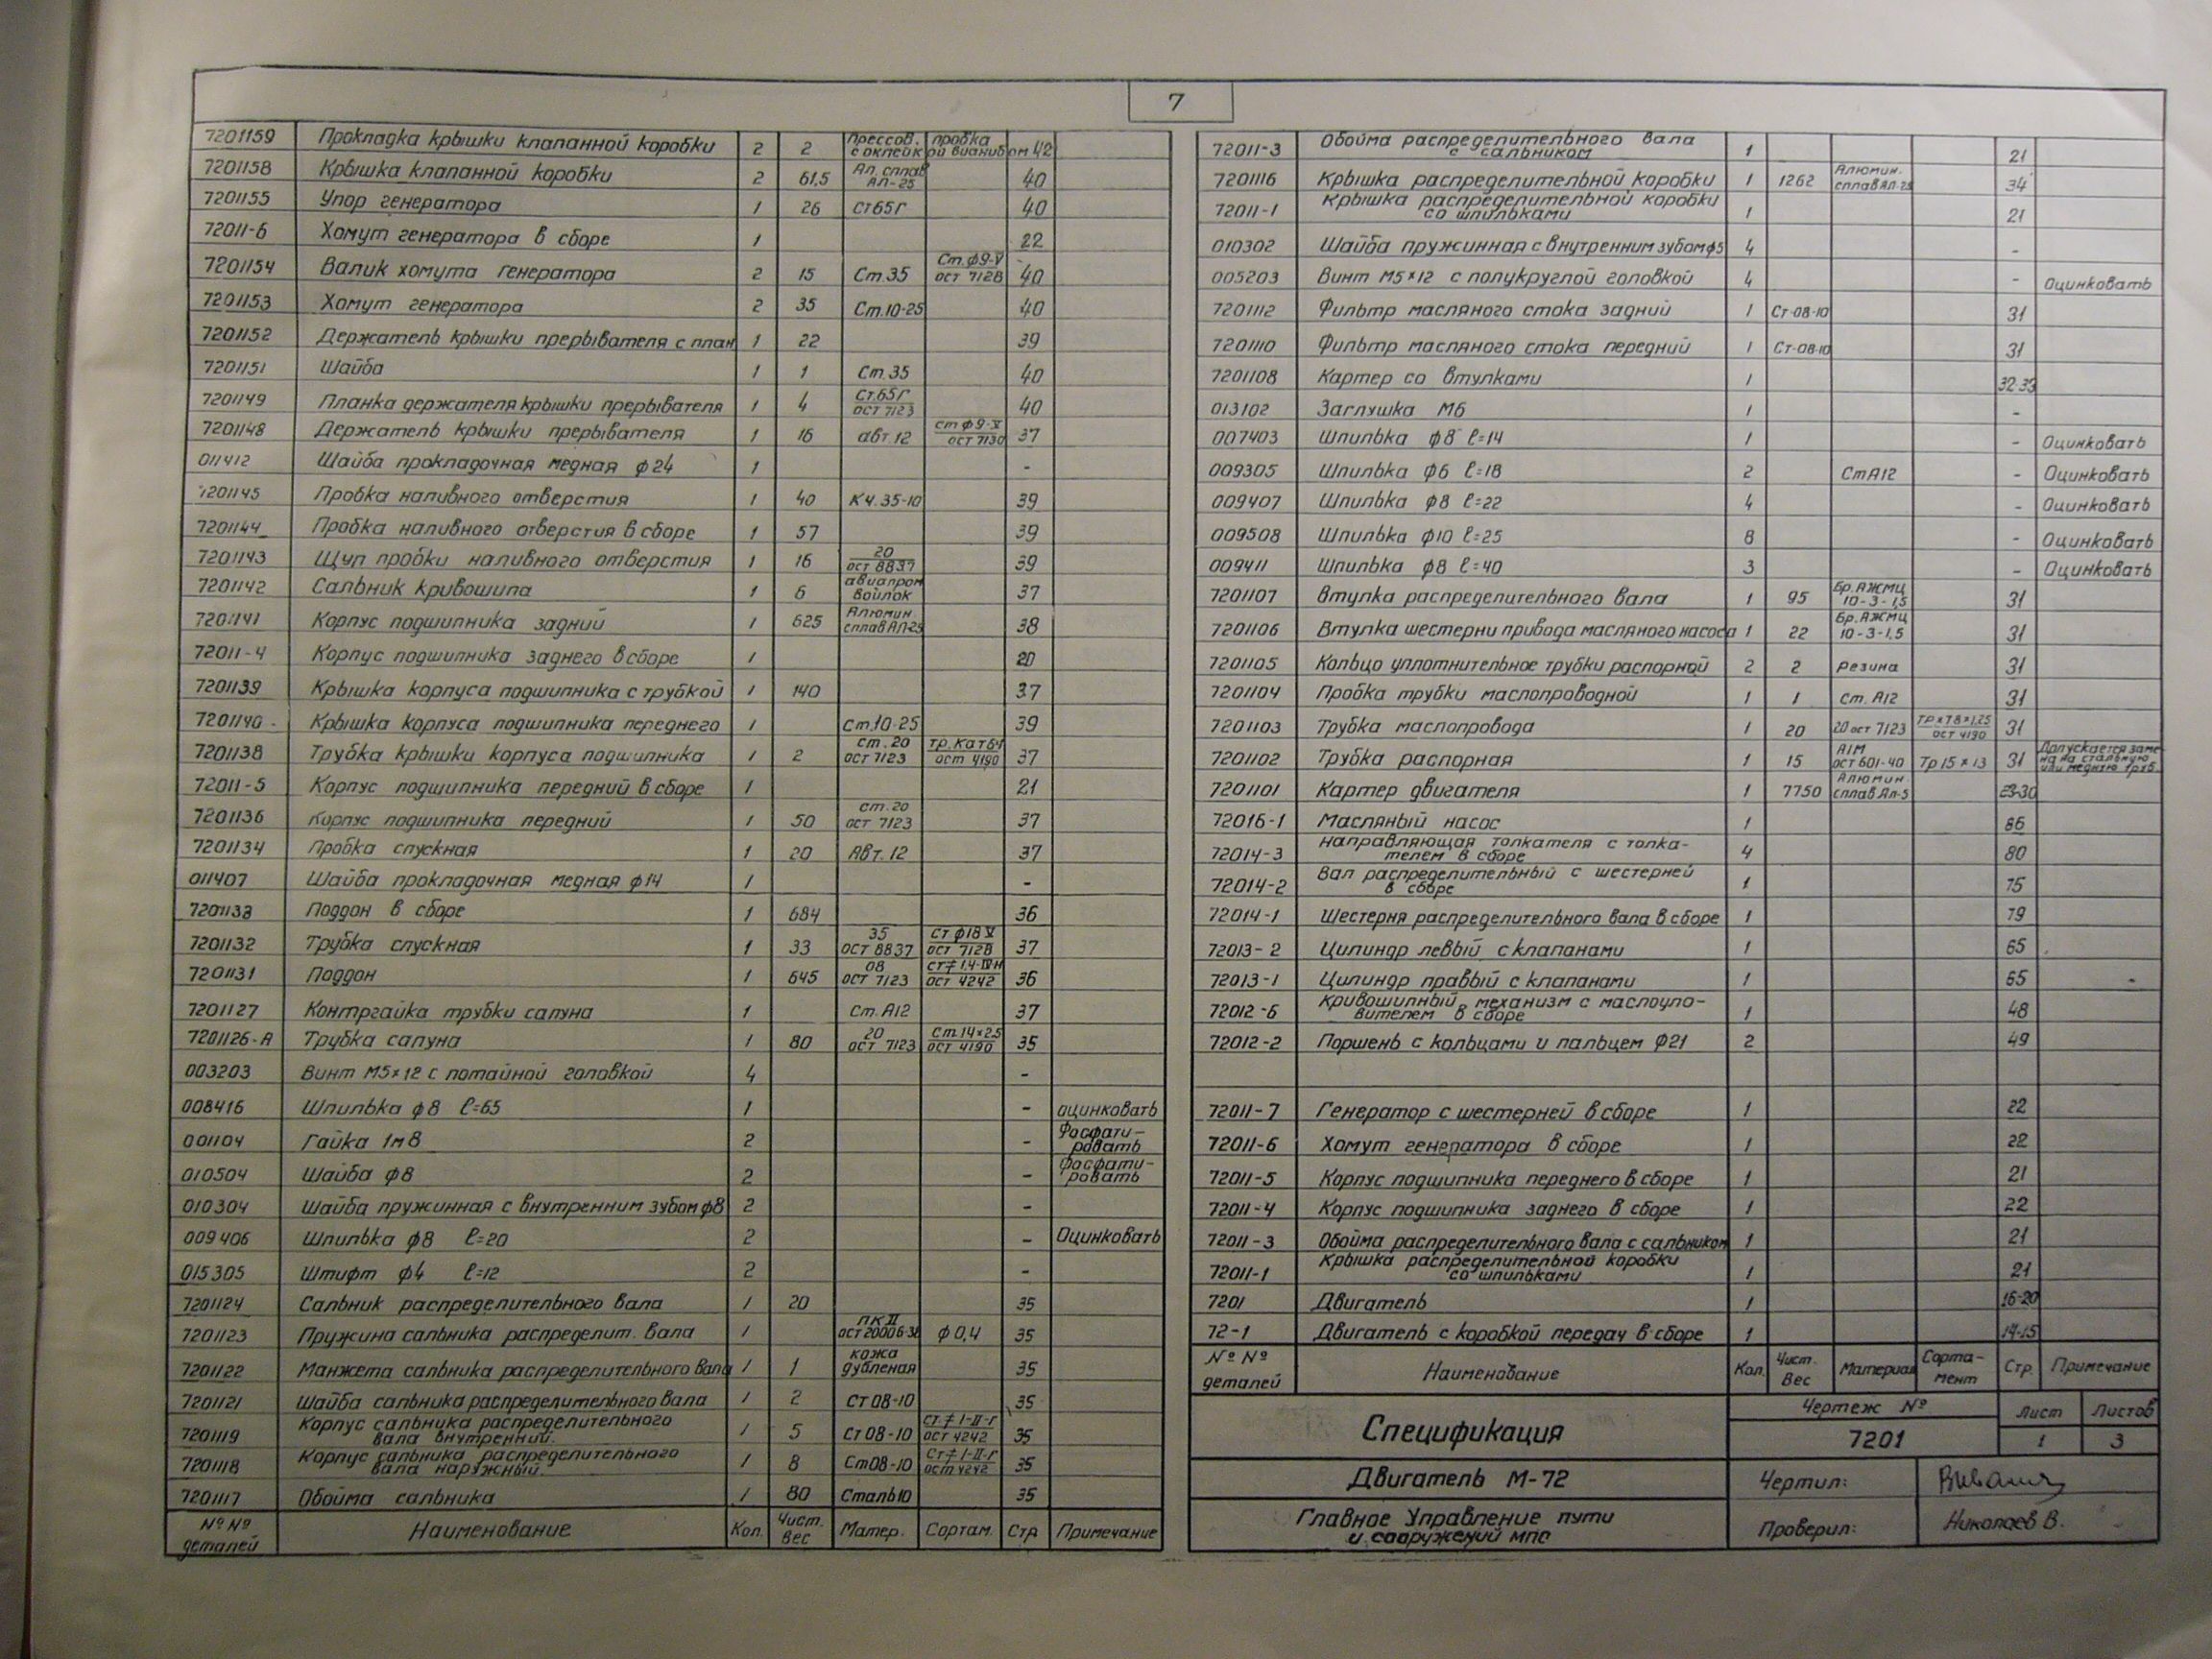 7
7201159 Прокладка крышки клапанной коробки 2 2 Прессов. пробка с оклейкой
7201158 Крышка клапанной коробки 2 61,5 Ал. сплав АЛ-25 40
7201155 Упор генератора 1 26 Ст 65Г 40
72011-6 Хомут генератора в сборе 1 22
7201154 Валик хомута генератора 2 15 Ст.35 Ст.ф9-V ост 7128 40
7201153 Хомут генератора 2 35 Ст.10-25 40
7201152 Держатель крышки прерывателя с план 1 22 39
7201151 Шайба 1 1 Ст.35 40
7201149 Планка держателя крышки прерывателя 1 4 Ст.65Г ост 7123 40
7201148 Держатель крышки прерывателя 1 16 авт.12 ст ф9-V ост 7130 37
011412 Шайба прокладочная медная ф24 1 -
7201145 Пробка наливного отверстия 1 40 КЧ.35-10 39
7201144 Пробка наливного отверстия в сборе 1 57 39
7201143 Щуп пробки наливного отверстия 1 16 20 ост 8837 39
7201142 Сальник кривошипа 1 6 авиапром войлок 37
7201141 Корпус подшипника задний 1 625 Алюмин. сплав АЛ-25 38
72011-4 Корпус подшипника заднего в сборе 1 20
7201139 Крышка корпуса подшипника с трубкой 1 140 37
7201140 Крышка корпуса подшипника переднего 1 Ст.10-25 39
7201138 Трубка крышки корпуса подшипника 1 2 ст.20 ост 7123 ост 4190 37
72011-5 Корпус подшипника передний в сборе 1 21
7201136 Корпус подшипника передний 1 50 ст.20 ост 7123 37
7201134 Пробка спускная 1 20 Авт.12 37
011407 Шайба прокладочная медная ф14 1 -
7201133 Поддон в сборе 1 684 36
7201132 Трубка спускная 1 33 35 ост 8837 Ст ф18 V ост 7128 37
7201131 Поддон 1 645 08 ост 7123 ст≠1,4-IVн ост 4242 36
7201127 Контргайка трубки сапуна 1 Ст.А12 37
7201126-А Трубка сапуна 1 80 20 ост 7123 Ст.14×2.5 ост 4190 35
003203 Винт М5×12 с потайной головкой 4 -
008416 Шпилька ф8 ℓ=65 1 - оцинковать
001104 Гайка 1м8 2 - Фосфатировать
010504 Шайба ф8 2 - Фосфатировать
010304 Шайба пружинная с внутренним зубом ф8 2 -
009406 Шпилька ф8 ℓ=20 2 - Оцинковать
015305 Штифт ф4 ℓ=12 2 -
7201124 Сальник распределительного вала 1 20 35
7201123 Пружина сальника распределит. вала 1 ПК II ост 20006-38 ф0,4 35
7201122 Манжета сальника распределительного вала 1 1 кожа дубленая 35
7201121 Шайба сальника распределительного вала 1 2 Ст 08-10 35
7201119 Корпус сальника распределительного вала внутренний 1 5 Ст 08-10 Ст≠1-II-Г ост 4242 35
7201118 Корпус сальника распределительного вала наружный 1 8 Ст08-10 Ст≠1-II-Г ост 4242 35
7201117 Обойма сальника 1 80 Сталь10 35
№№ деталей Наименование Кол. Чист. вес Матер. Сортам. Стр Примечание
72011-3 Обойма распределительного вала с сальником 1 21
7201116 Крышка распределительной коробки 1 1262 Алюмин. сплав АЛ-25 34
72011-1 Крышка распределительной коробки со шпильками 1 21
010302 Шайба пружинная с внутренним зубом ф5 4 -
005203 Винт М5×12 с полукруглой головкой 4 - Оцинковать
7201112 Фильтр масляного стока задний 1 Ст-08-10 31
7201110 Фильтр масляного стока передний 1 Ст-08-10 31
7201108 Картер со втулками 1 32-33
013102 Заглушка М6 1 -
007403 Шпилька ф8 ℓ=14 1 - Оцинковать
009305 Шпилька ф6 ℓ=18 2 СтА12 - Оцинковать
009407 Шпилька ф8 ℓ=22 4 - Оцинковать
009508 Шпилька ф10 ℓ=25 8 - Оцинковать
009411 Шпилька ф8 ℓ=40 3 - Оцинковать
7201107 Втулка распределительного вала 1 95 Бр.АЖМЦ 10-3-1,5 31
7201106 Втулка шестерни привода масляного насоса 1 22 Бр.АЖМЦ 10-3-1,5 31
7201105 Кольцо уплотнительное трубки распорной 2 2 Резина 31
7201104 Пробка трубки маслопроводной 1 1 Ст. А12 31
7201103 Трубка маслопровода 1 20 20 ост 7123 ост 4190 31
7201102 Трубка распорная 1 15 А1М ост 601-40 Тр 15×13 31 Допускается замена на стальную или медную
7201101 Картер двигателя 1 7750 Алюмин. сплав Ал-5 23-30
72016-1 Масляный насос 1 86
72014-3 Направляющая толкателя с толкателем в сборе 4 80
72014-2 Вал распределительный с шестерней в сборе 1 75
72014-1 Шестерня распределительного вала в сборе 1 79
72013-2 Цилиндр левый с клапанами 1 65
72013-1 Цилиндр правый с клапанами 1 65
72012-6 Кривошипный механизм с маслоуловителем в сборе 1 48
72012-2 Поршень с кольцами и пальцем ф21 2 49
72011-7 Генератор с шестерней в сборе 1 22
72011-6 Хомут генератора в сборе 1 22
72011-5 Корпус подшипника переднего в сборе 1 21
72011-4 Корпус подшипника заднего в сборе 1 22
72011-3 Обойма распределительного вала с сальником 1 21
72011-1 Крышка распределительной коробки со шпильками 1 21
7201 Двигатель 1 16-20
72-1 Двигатель с коробкой передач в сборе 1 14-15
№№ деталей Наименование Кол. Чист. Вес Материал Сортамент Стр. Примечание
Спецификация Чертеж № Лист Листов
7201 1 3
Двигатель М-72 Чертил:
Главное Управление пути
и сооружений МПС Проверил: Николаев В.